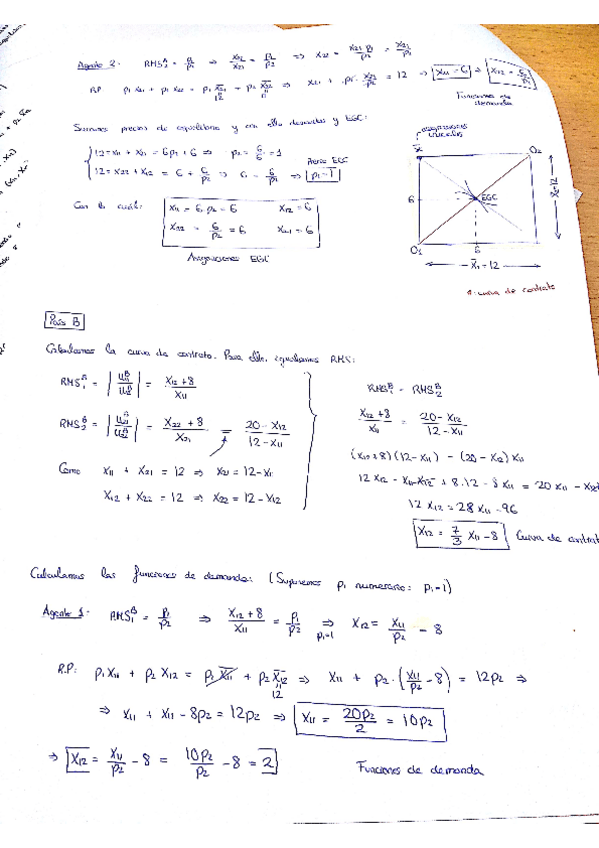 Agente 2: RMS₂ᴬ = p₁/p₂ ⇒ x₂₂/x₂₁ = p₁/p₂ ⇒ x₂₂ = x₂₁ p₁/p₂ = x₂₁/p₂
RP p₁ x₂₁ + p₂ x₂₂ = p₁ x̄₂₁ + p₂ x̄₂₂ ⇒ x₂₁ + p₂ · x₂₁/p₂ = 12 ⇒ x₂₁ = 6 ⇒ x₂₂ = 6/p₂
12
Funciones de demanda
precios de equilibrio y con ello demandas y EGC:
12 = x₁₁ + x₂₁ = 6p₂ + 6 ⇒ p₂ = 6/6 = 1
12 = x₂₂ + x₁₂ = 6 + 6/p₂ ⇒ 6 = 6/p₂ ⇒ p₂ = 1
Precio EGC
Con lo cual: x₁₁ = 6 p₂ = 6 x₁₂ = 6
x₂₂ = 6/p₂ = 6 x₂₁ = 6
Asignaciones EGC
asignaciones iniciales
x̄
O₂
6
EGC
X̄₂ = 12
O₁
6
X̄₁ = 12
curva de contrato
País B
Calculamos la curva de contrato. Para ello, igualamos RMS:
RMS₁ᴮ = | | = x₁₂ + 8 / x₁₁
RMS₂ᴮ = | | = x₂₂ + 8 / x₂₁ = 20 - x₁₂ / 12 - x₁₁
Como x₁₁ + x₂₁ = 12 ⇒ x₂₁ = 12 - x₁₁
x₁₂ + x₂₂ = 12 ⇒ x₂₂ = 12 - x₁₂
RMS₁ᴮ = RMS₂ᴮ
x₁₂ + 8 / x₁₁ = 20 - x₁₂ / 12 - x₁₁
(x₁₂ + 8)(12 - x₁₁) = (20 - x₁₂) x₁₁
12 x₁₂ - x₁₁x₁₂ + 8·12 - 8 x₁₁ = 20 x₁₁ - x₁₂
12 x₁₂ = 28 x₁₁ - 96
x₁₂ = 7/3 x₁₁ - 8 Curva de contrat
Calculamos las funciones de demanda: (Suponemos p₁ numerario: p₁ = 1)
Agente 1: RMS₁ᴮ = p₁/p₂ ⇒ x₁₂ + 8 / x₁₁ = p₁/p₂ ⇒ x₁₂ = x₁₁/p₂ - 8
p₁=1
R.P: p₁ x₁₁ + p₂ x₁₂ = p₁ x̄₁₁ + p₂ x̄₁₂ ⇒ x₁₁ + p₂ · (x₁₁/p₂ - 8) = 12p₂ ⇒
12
⇒ x₁₁ + x₁₁ - 8p₂ = 12p₂ ⇒ x₁₁ = 20p₂/2 = 10p₂
⇒ x₁₂ = x₁₁/p₂ - 8 = 10p₂/p₂ - 8 = 2
Funciones de demanda